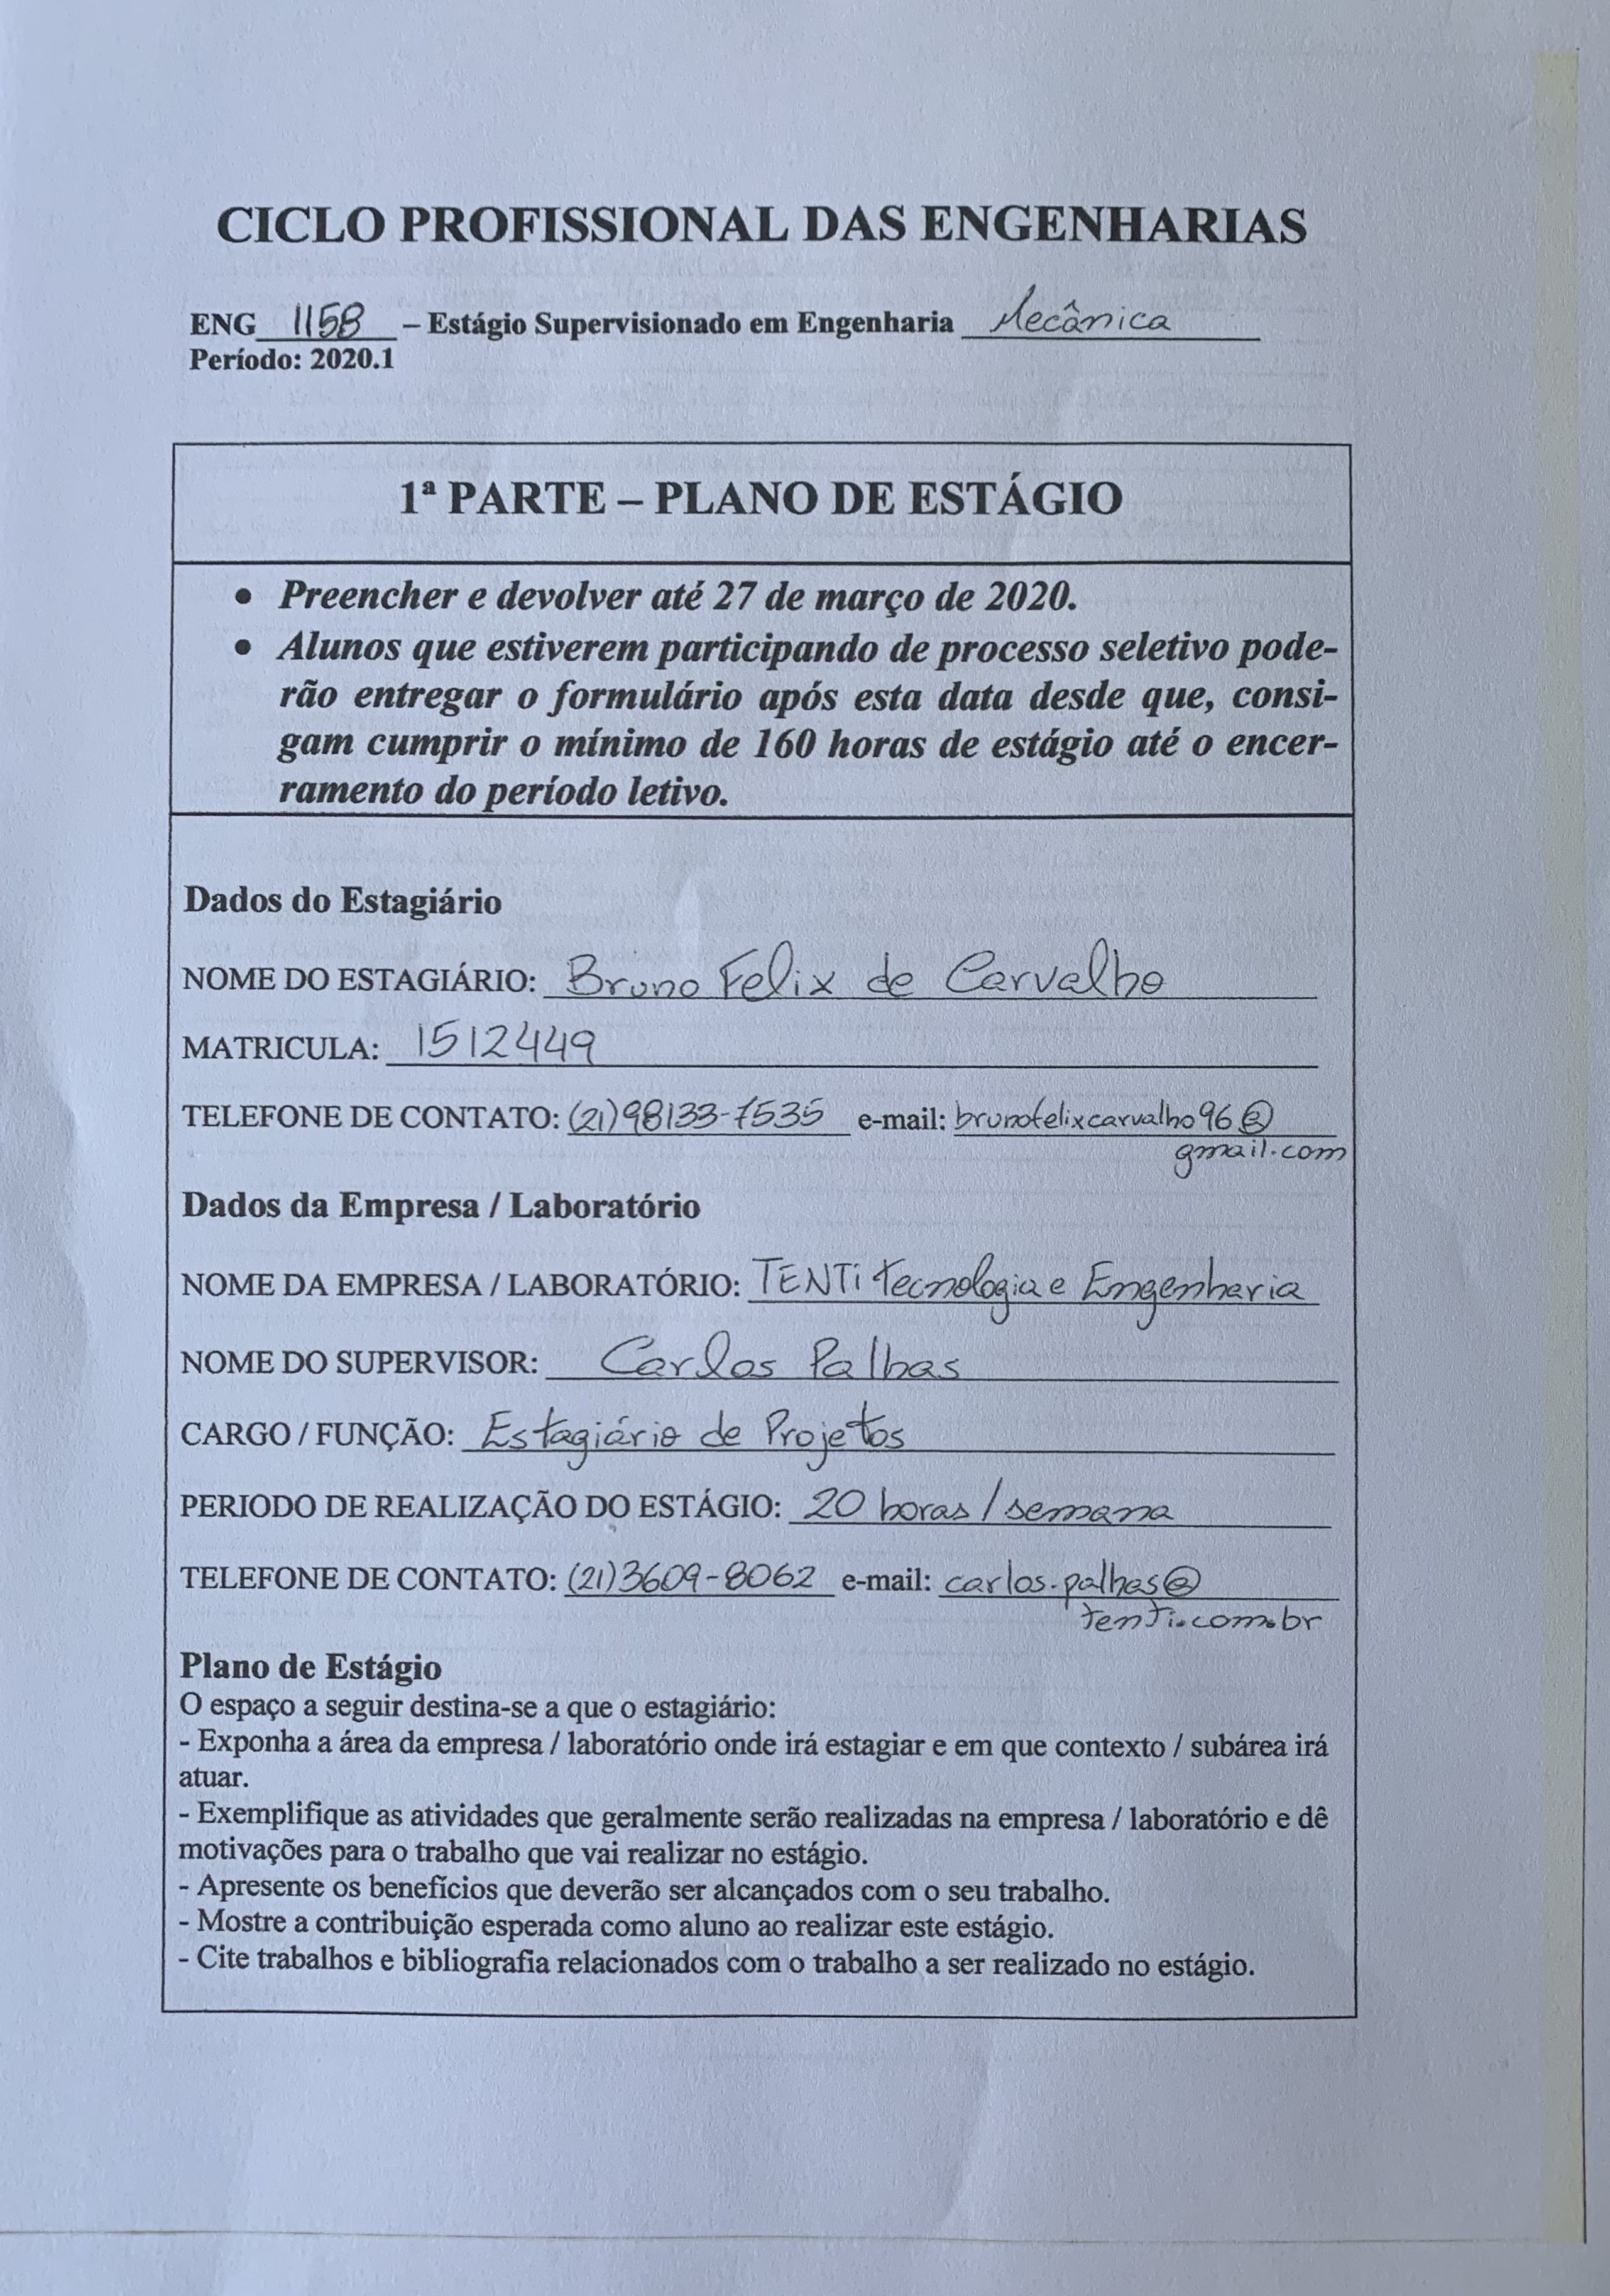 CICLO PROFISSIONAL DAS ENGENHARIAS
ENG 1158 – Estágio Supervisionado em Engenharia Mecânica
Período: 2020.1
1ª PARTE – PLANO DE ESTÁGIO
• Preencher e devolver até 27 de março de 2020.
• Alunos que estiverem participando de processo seletivo pode-
rão entregar o formulário após esta data desde que, consi-
gam cumprir o mínimo de 160 horas de estágio até o encer-
ramento do período letivo.
Dados do Estagiário
NOME DO ESTAGIÁRIO: Bruno Felix de Carvalho
MATRICULA: 1512449
TELEFONE DE CONTATO: (21)98133-7535 e-mail: brunofelixcarvalho96@
gmail.com
Dados da Empresa / Laboratório
NOME DA EMPRESA / LABORATÓRIO: TENTi Tecnologia e Engenharia
NOME DO SUPERVISOR: Carlos Palhas
CARGO / FUNÇÃO: Estagiário de Projetos
PERIODO DE REALIZAÇÃO DO ESTÁGIO: 20 horas/semana
TELEFONE DE CONTATO: (21)3609-8062 e-mail: carlos.palhas@
tenti.com.br
Plano de Estágio
O espaço a seguir destina-se a que o estagiário:
- Exponha a área da empresa / laboratório onde irá estagiar e em que contexto / subárea irá
atuar.
- Exemplifique as atividades que geralmente serão realizadas na empresa / laboratório e dê
motivações para o trabalho que vai realizar no estágio.
- Apresente os benefícios que deverão ser alcançados com o seu trabalho.
- Mostre a contribuição esperada como aluno ao realizar este estágio.
- Cite trabalhos e bibliografia relacionados com o trabalho a ser realizado no estágio.